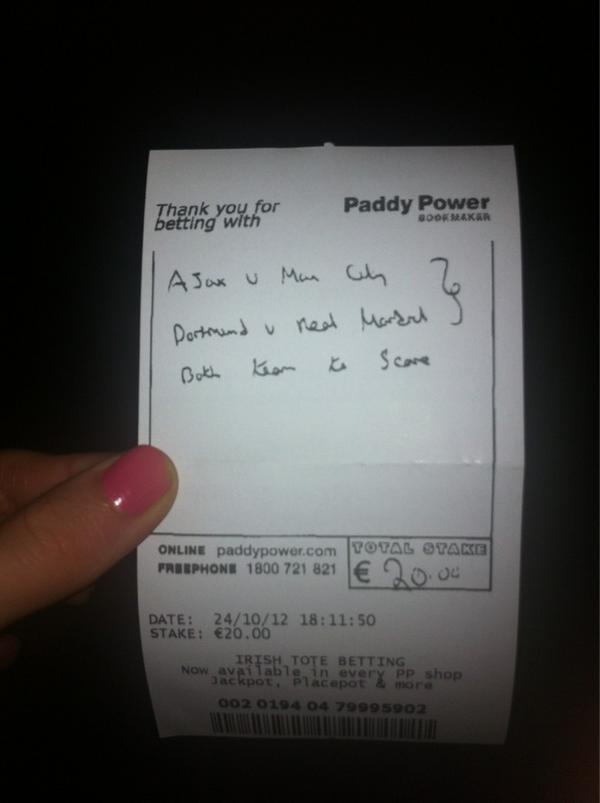 Thank you for
betting with
Paddy Power
BOOKMAKER
AJax v Man City
Dortmund v Real Madrid
Both team to Score
ONLINE paddypower.com
FREEPHONE 1800 721 821
TOTAL STAKE
€ 20.00
DATE: 24/10/12 18:11:50
STAKE: €20.00
IRISH TOTE BETTING
Now available in every PP shop
Jackpot, Placepot & more
002 0194 04 79995902